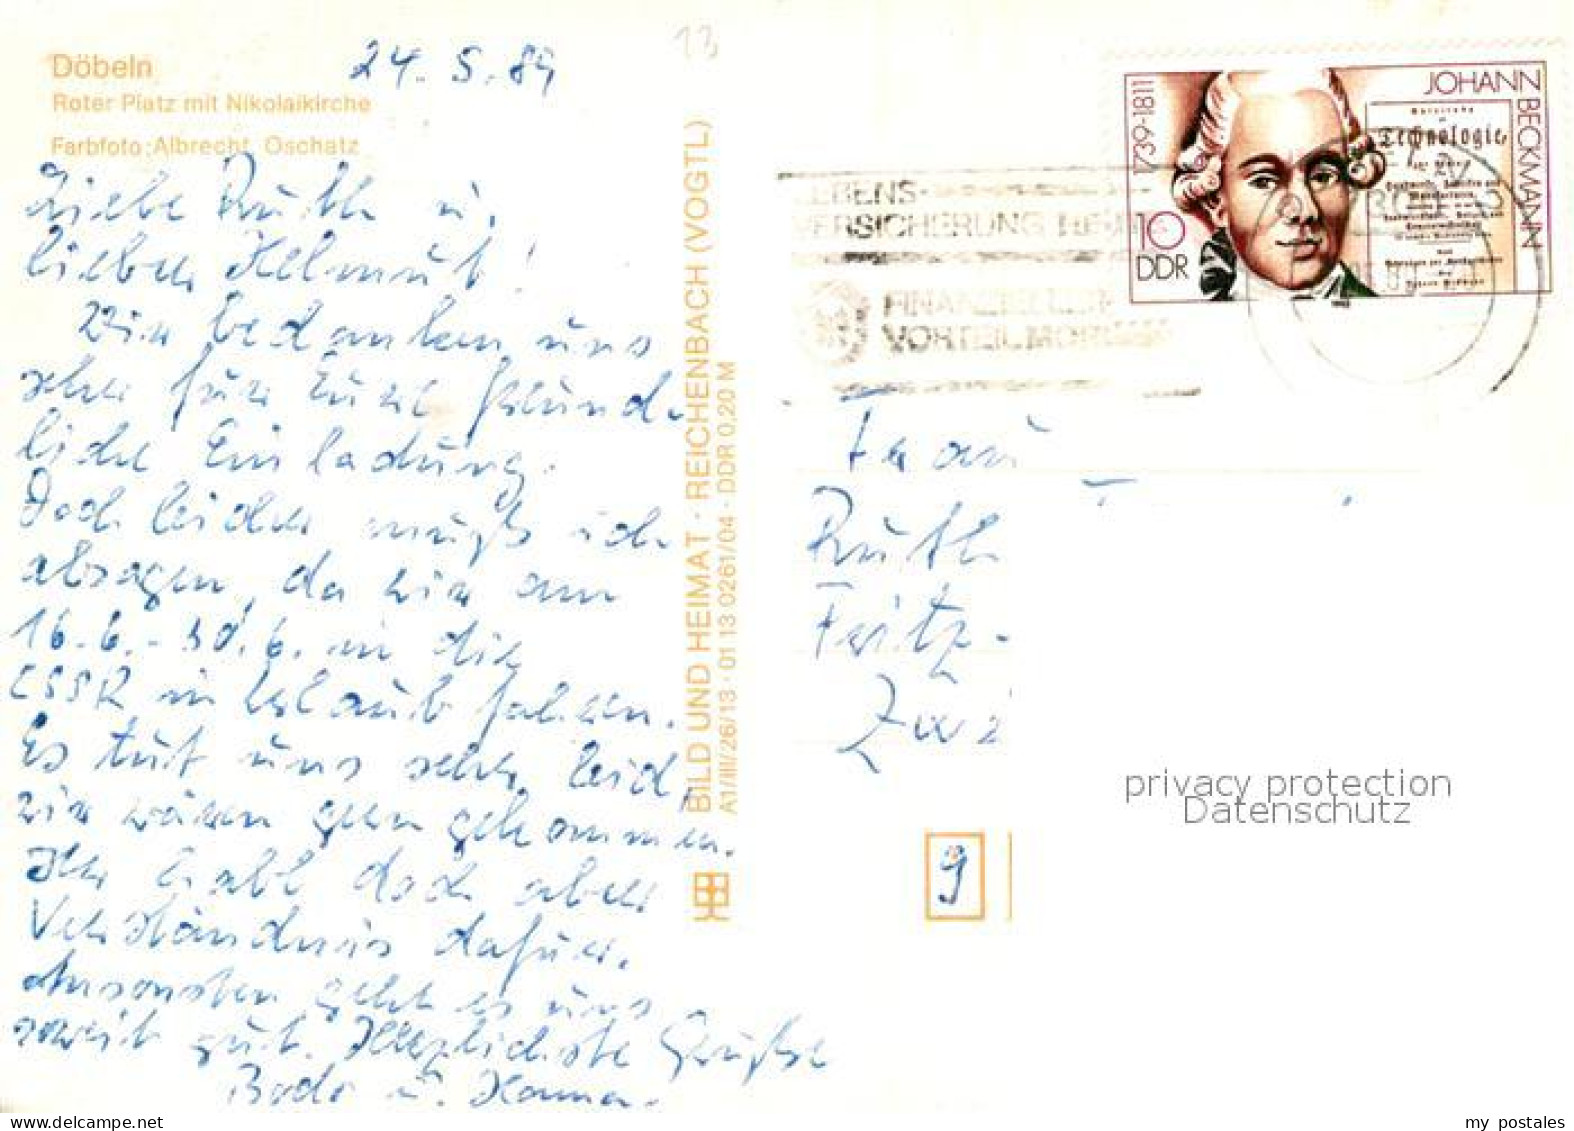 13
24. 5. 89
Döbeln
Roter Platz mit Nikolaikirche
Farbfoto: Albrecht, Oschatz
Liebe Ruth u.
lieber Helmut!
Wir bedanken uns
sehr für Eure freund-
liche Einladung.
Doch leider muß ich
absagen, da wir am
16.6.-30.6. in die
CSSR in Urlaub fahren.
Es tut uns sehr leid,
wir wären gern gekommen.
Ihr habt doch aber
Verständnis dafür.
Ansonsten geht es uns
soweit gut. Herzlichste Grüße
Bodo u. Hanna.
BILD UND HEIMAT · REICHENBACH (VOGTL)
A1/III/26/13 · 01 13 0261/04 · DDR 0,20 M
LEBENS-
VERSICHERUNG
FINANZIELLER
VORTEIL
JOHANN BECKMANN
1739-1811
Technologie
10
DDR
Frau
Ruth
Fritz-
9
privacy protection
Datenschutz
my postales